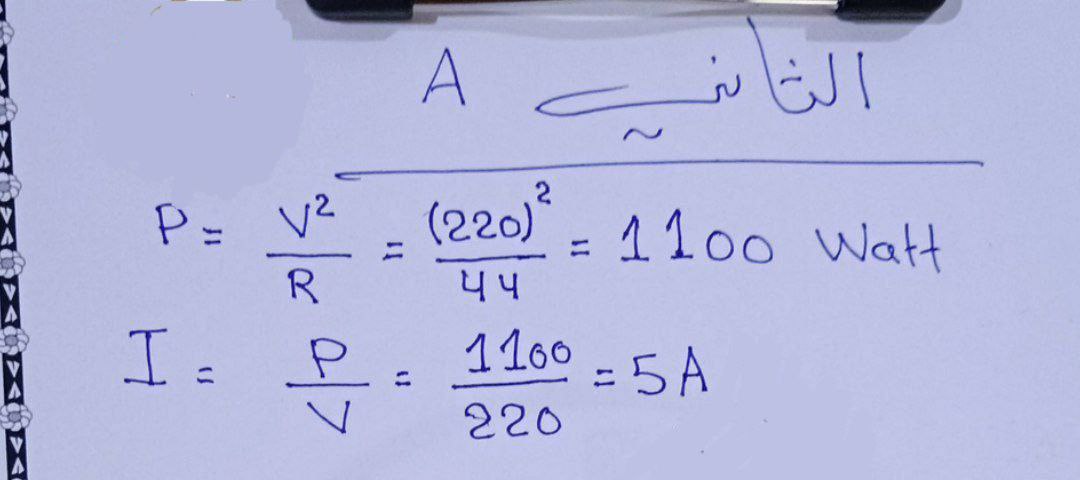 الثاني A
P = V² / R = (220)² / 44 = 1100 Watt
I = P / V = 1100 / 220 = 5A